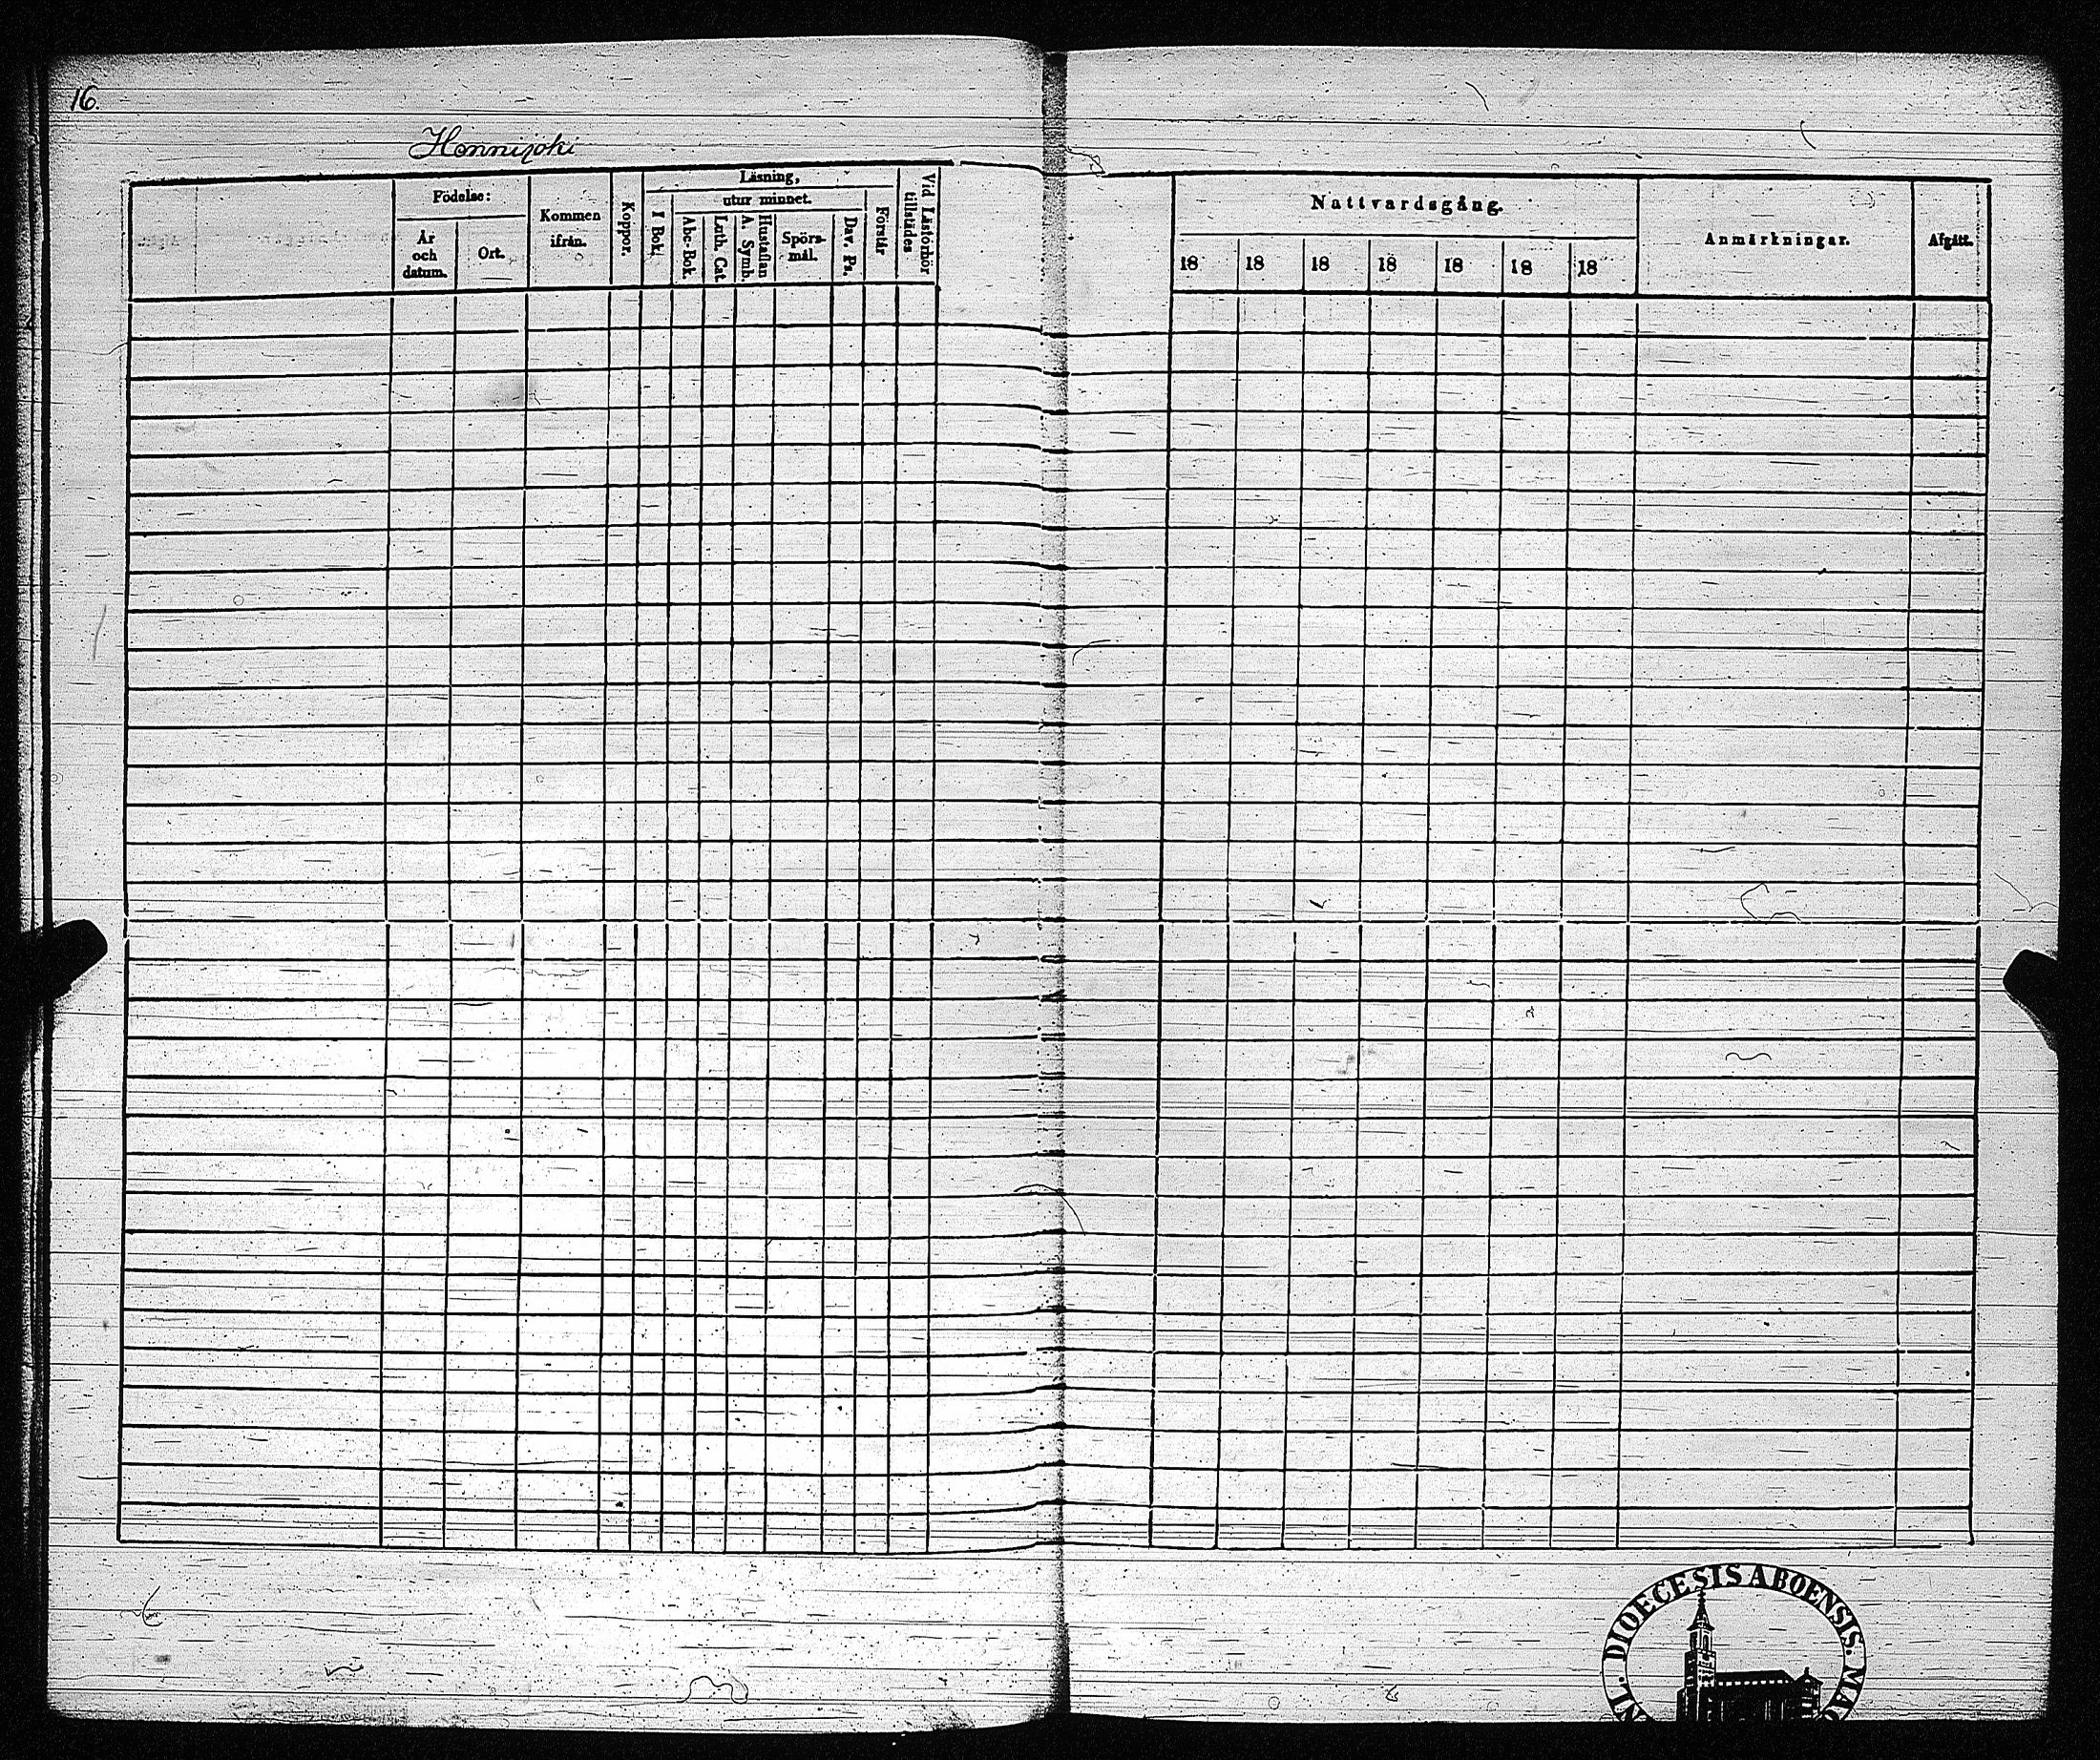 16.
Honnijoki
Födelse:
År
och
datum.
Ort.
Kommen
ifrån.
Koppor.
Läsning,
I Bok.
utur minnet.
Abc-Bok.
Luth. Cat.
Hustaflan
A. Symb.
Spörs-
mål.
Dav. Ps.
Förstår
Vid Läsförhör
tillstädes
Nattvardsgång.
18 18 18 18 18 18 18
Anmärkningar.
Afgått.
DIOECESIS ABOENSIS.